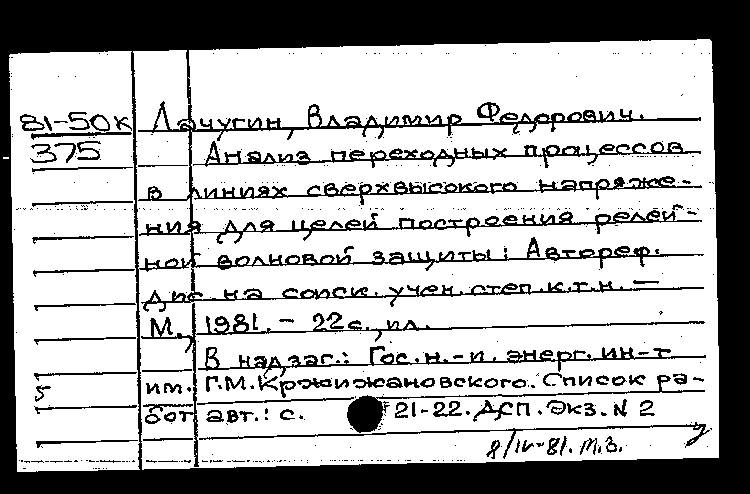 81-50к Лачугин, Владимир Федорович.
375 Анализ переходных процессов
в линиях сверхвысокого напряже-
ния для целей построения релей-
ной волновой защиты: Автореф.
дис. на соиск. учен. степ. к.т.н. —
М., 1981. - 22с., ил.
В надзаг.: Гос. н.-и. энерг. ин-т
5 им. Г.М. Кржижановского. Список ра-
бот авт.: с. 21-22. ДСП. Экз. N 2
8/IV-81. М.З.